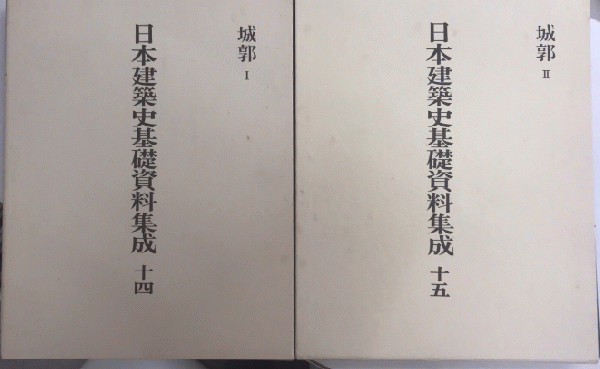 城郭 I
日本建築史基礎資料集成 十四
城郭 II
日本建築史基礎資料集成 十五